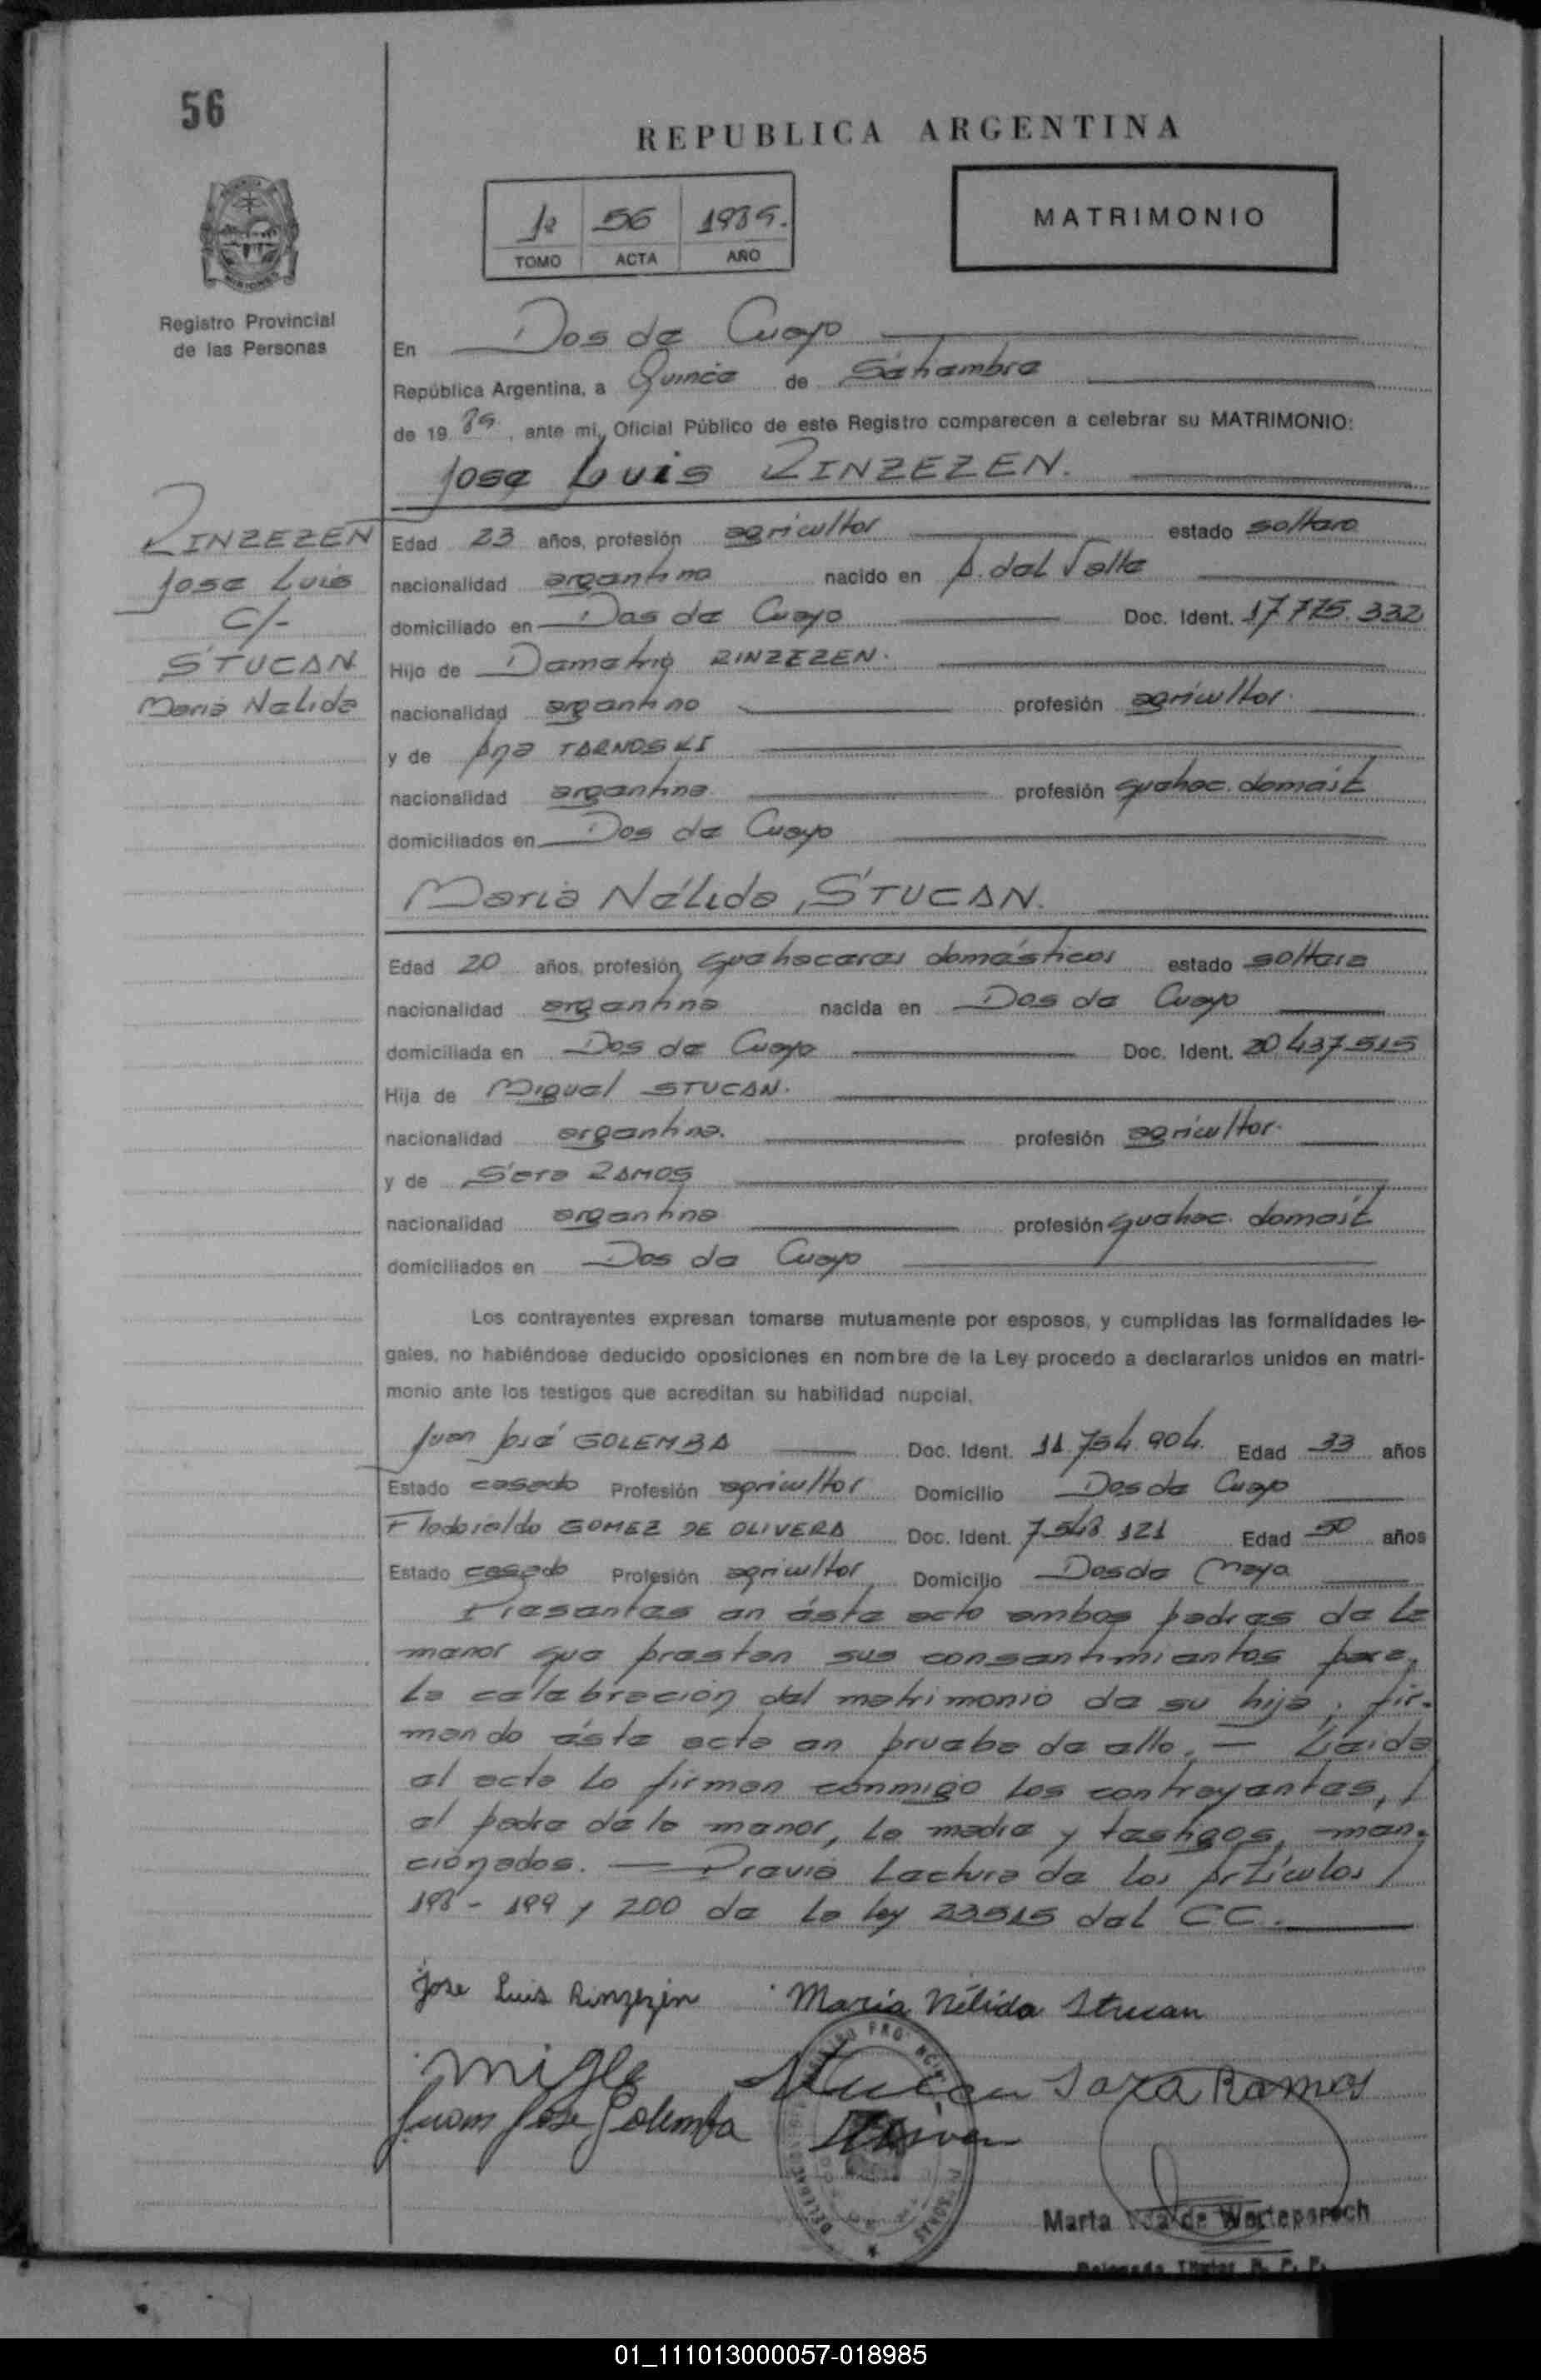 56
REPUBLICA ARGENTINA
1º 56 1989.
TOMO ACTA AÑO
MATRIMONIO
Registro Provincial
de las Personas
En Dos de Mayo
República Argentina, a Quince de Setiembre
de 1989, ante mi, Oficial Público de este Registro comparecen a celebrar su MATRIMONIO:
Jose Luis RINZEZEN.
RINZEZEN
Jose Luis
c/-
STUCAN
Maria Nelida
Edad 23 años, profesión agricultor estado soltero
nacionalidad argentino nacido en A. del Valle
domiciliado en Dos de Mayo Doc. Ident. 17.775.332
Hijo de Demetrio RINZEZEN.
nacionalidad argentino profesión agricultor.
y de Ana TARNOSKI
nacionalidad argentina profesión quehac. domést
domiciliados en Dos de Mayo
Maria Nélida STUCAN.
Edad 20 años, profesión quehaceres domésticos estado soltera
nacionalidad argentina nacida en Dos de Mayo
domiciliada en Dos de Mayo Doc. Ident. 20.437.515
Hija de Miguel STUCAN.
nacionalidad argentino. profesión agricultor.
y de Sara RAMOS
nacionalidad argentina profesión quehac. domést
domiciliados en Dos de Mayo
Los contrayentes expresan tomarse mutuamente por esposos, y cumplidas las formalidades le-
gales, no habiéndose deducido oposiciones en nombre de la Ley procedo a declararlos unidos en matri-
monio ante los testigos que acreditan su habilidad nupcial.
Juan José GOLEMBA Doc. Ident. 11.754.904. Edad 33 años
Estado casado Profesión agricultor Domicilio Dos de Mayo
Flodoraldo GOMEZ DE OLIVERA Doc. Ident. 7.548.121 Edad 50 años
Estado casado Profesión agricultor Domicilio Dos de Mayo
Presentes en éste acto ambos padres de la
menor que prestan sus consentimientos para
la celebración del matrimonio de su hija, fir-
mando ésta acta en prueba de ello. — Leída
el acta lo firman conmigo los contrayentes, /
el padre de la menor, la madre y testigos, men-
cionados. — Previa Lectura de los Artículos /
198 - 199 y 200 de la ley 23515 del CC.
Jose Luis Rinzezen Maria Nélida Stucan
Migle Stucan Sara Ramos
Juan Jose Golemba
Marta Vda de
01_111013000057-018985